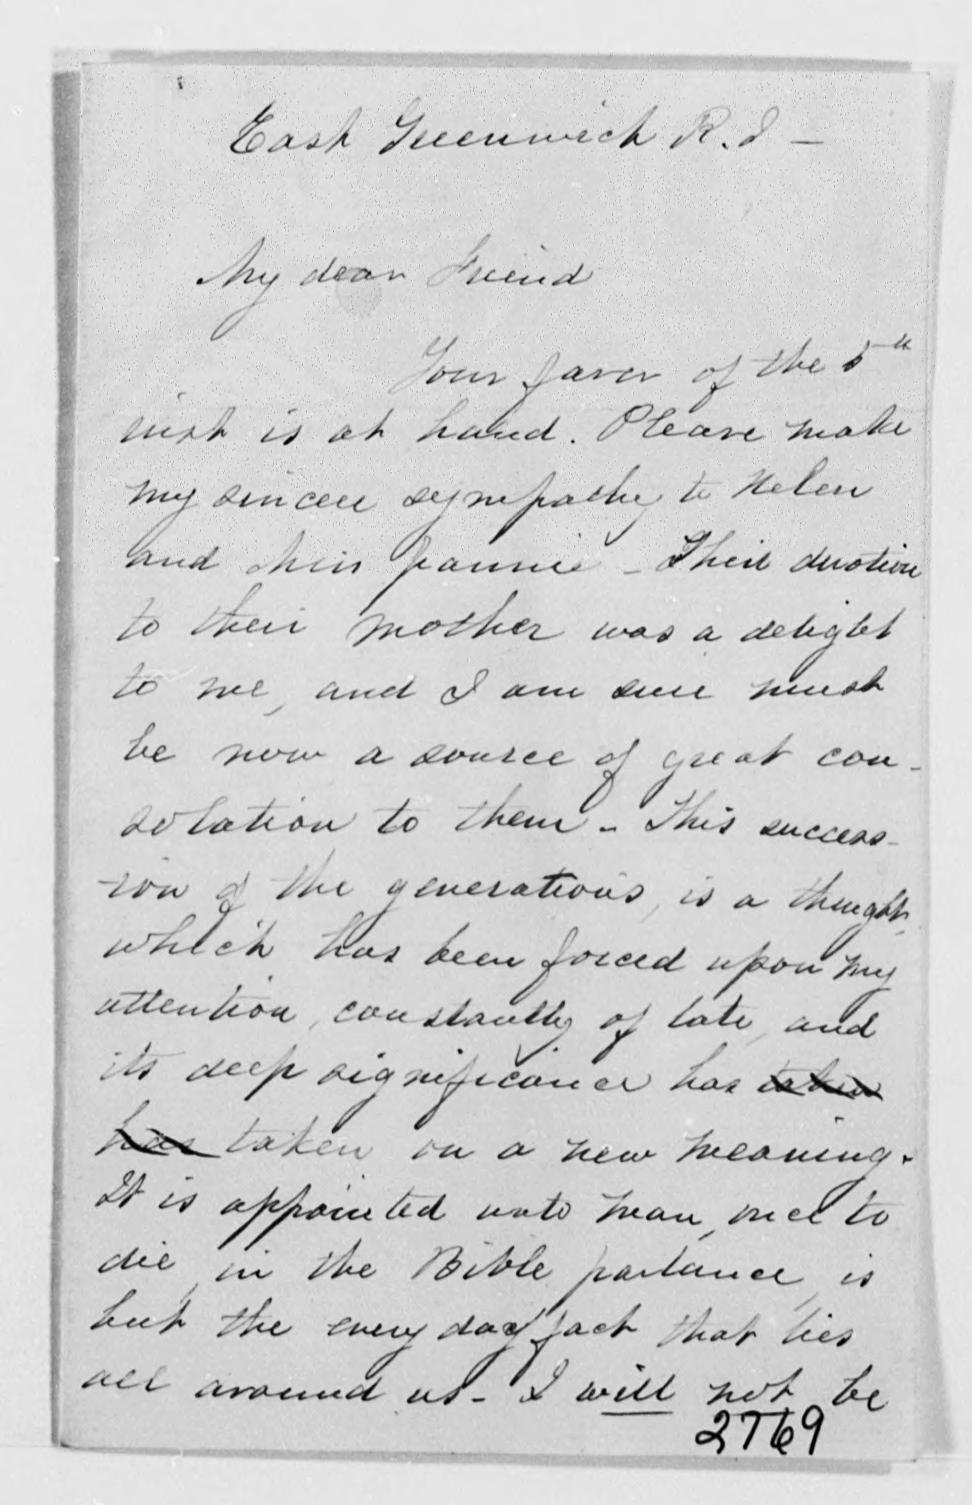 East Greenwich R.I —
My dear Friend
Your favor of the 5th
inst is at hand. Please make
my sincere sympathy to Helen
and Miss Fannie – Their devotion
to their mother was a delight
to me, and I am sure must
be now a source of great con-
solation to them – This success-
sion of the generations, is a thought,
which has been forced upon my
attention, constantly of late, and
its deep significance has taken
has taken on a new meaning.
It is appointed unto man, once to
die, in the Bible parlance, is
but the every day fact that lies
all around us – I will not be
2769